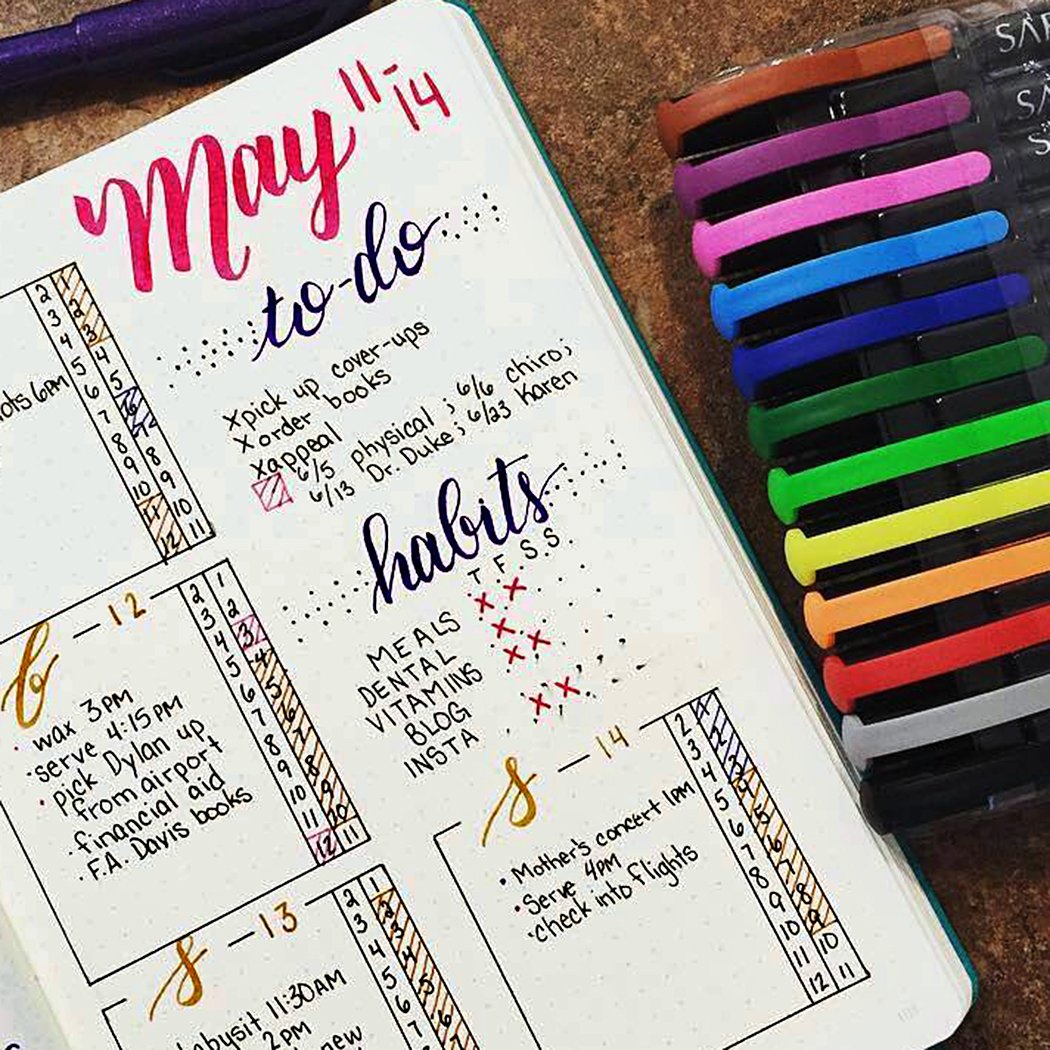 May 11-14
to-do
xpick up cover-ups
xorder books
xappeal
6/5 physical ; 6/6 chiro;
6/13 Dr. Duke; 6/23 Karen
habits
T F S S
MEALS
DENTAL
VITAMINS
BLOG
INSTA
6PM
2 1
3 2
4 3
5 4
6 5
7 6
8 7
9 8
10 9
11 10
12 11
f - 12
· wax 3PM
· serve 4:15PM
· pick Dylan up
from airport
· financial aid
· F.A. Davis books
2 1
3 2
4 3
5 4
6 5
7 6
8 7
9 8
10 9
11 10
12 11
s - 13
babysit 11:30AM
2PM
new
2 1
3 2
4 3
5 4
6 5
7 6
s - 14
· Mother's concert 1PM
· Serve 4PM
· check into flights
2 1
3 2
4 3
5 4
6 5
7 6
8 7
9 8
10 9
11 10
12 11